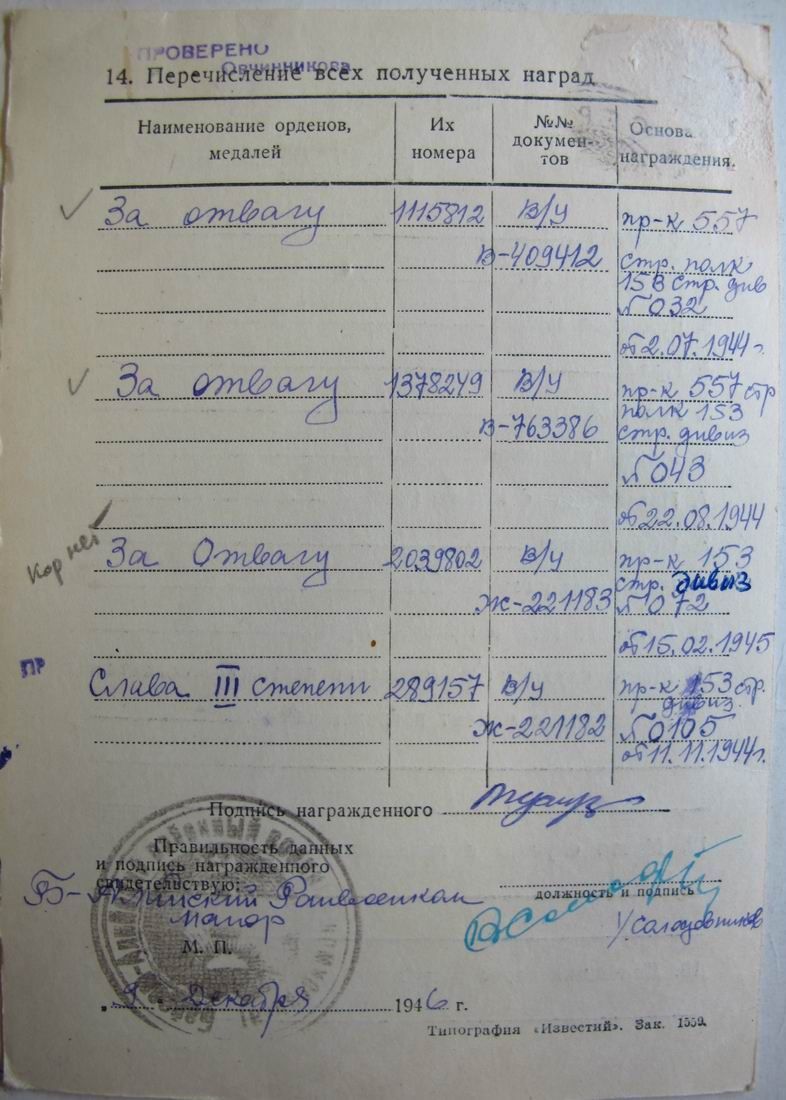 ПРОВЕРЕНО
Овчинникова
14. Перечисление всех полученных наград
Наименование орденов, медалей
Их номера
№№ докумен-тов
Основа награждения.
За отвагу 1115812 В/У пр-к 557
В-409412 стр. полк
153 стр. див
№ 032
от 2.07.1944 г.
За отвагу 1378249 В/У пр-к 557 стр
полк 153
В-763386 стр. дивиз
№ 043
от 22.08.1944
Кор нет
За Отвагу 2039802 В/У пр-к 153
стр. дивиз
Ж-221183 № 072
от 15.02.1945
ПР
Слава III степени 289157 В/У пр-к 153 стр.
дивиз.
Ж-221182 № 0105
от 11.11.1944 г.
Подпись награжденного
Правильность данных
и подпись награжденного
свидетельствую:
Райвоенком
Майор
должность и подпись
/Солодовников
М. П.
9 Декабря 1946 г.
Типография «Известий». Зак. 1559.